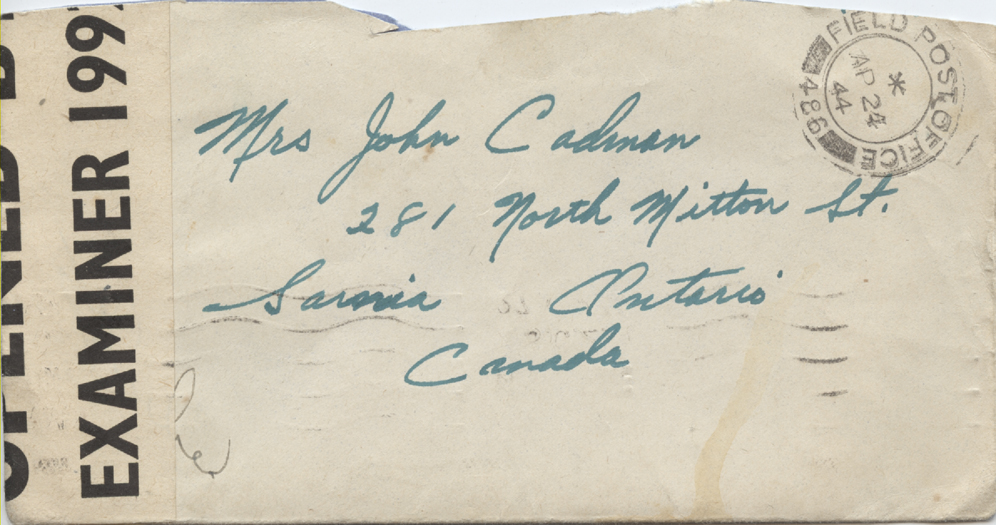 OPENED BY
EXAMINER 199
FIELD POST OFFICE
489
*
AP 24
44
Mrs John Cadman
281 North Mitton St.
Sarnia Ontario
Canada